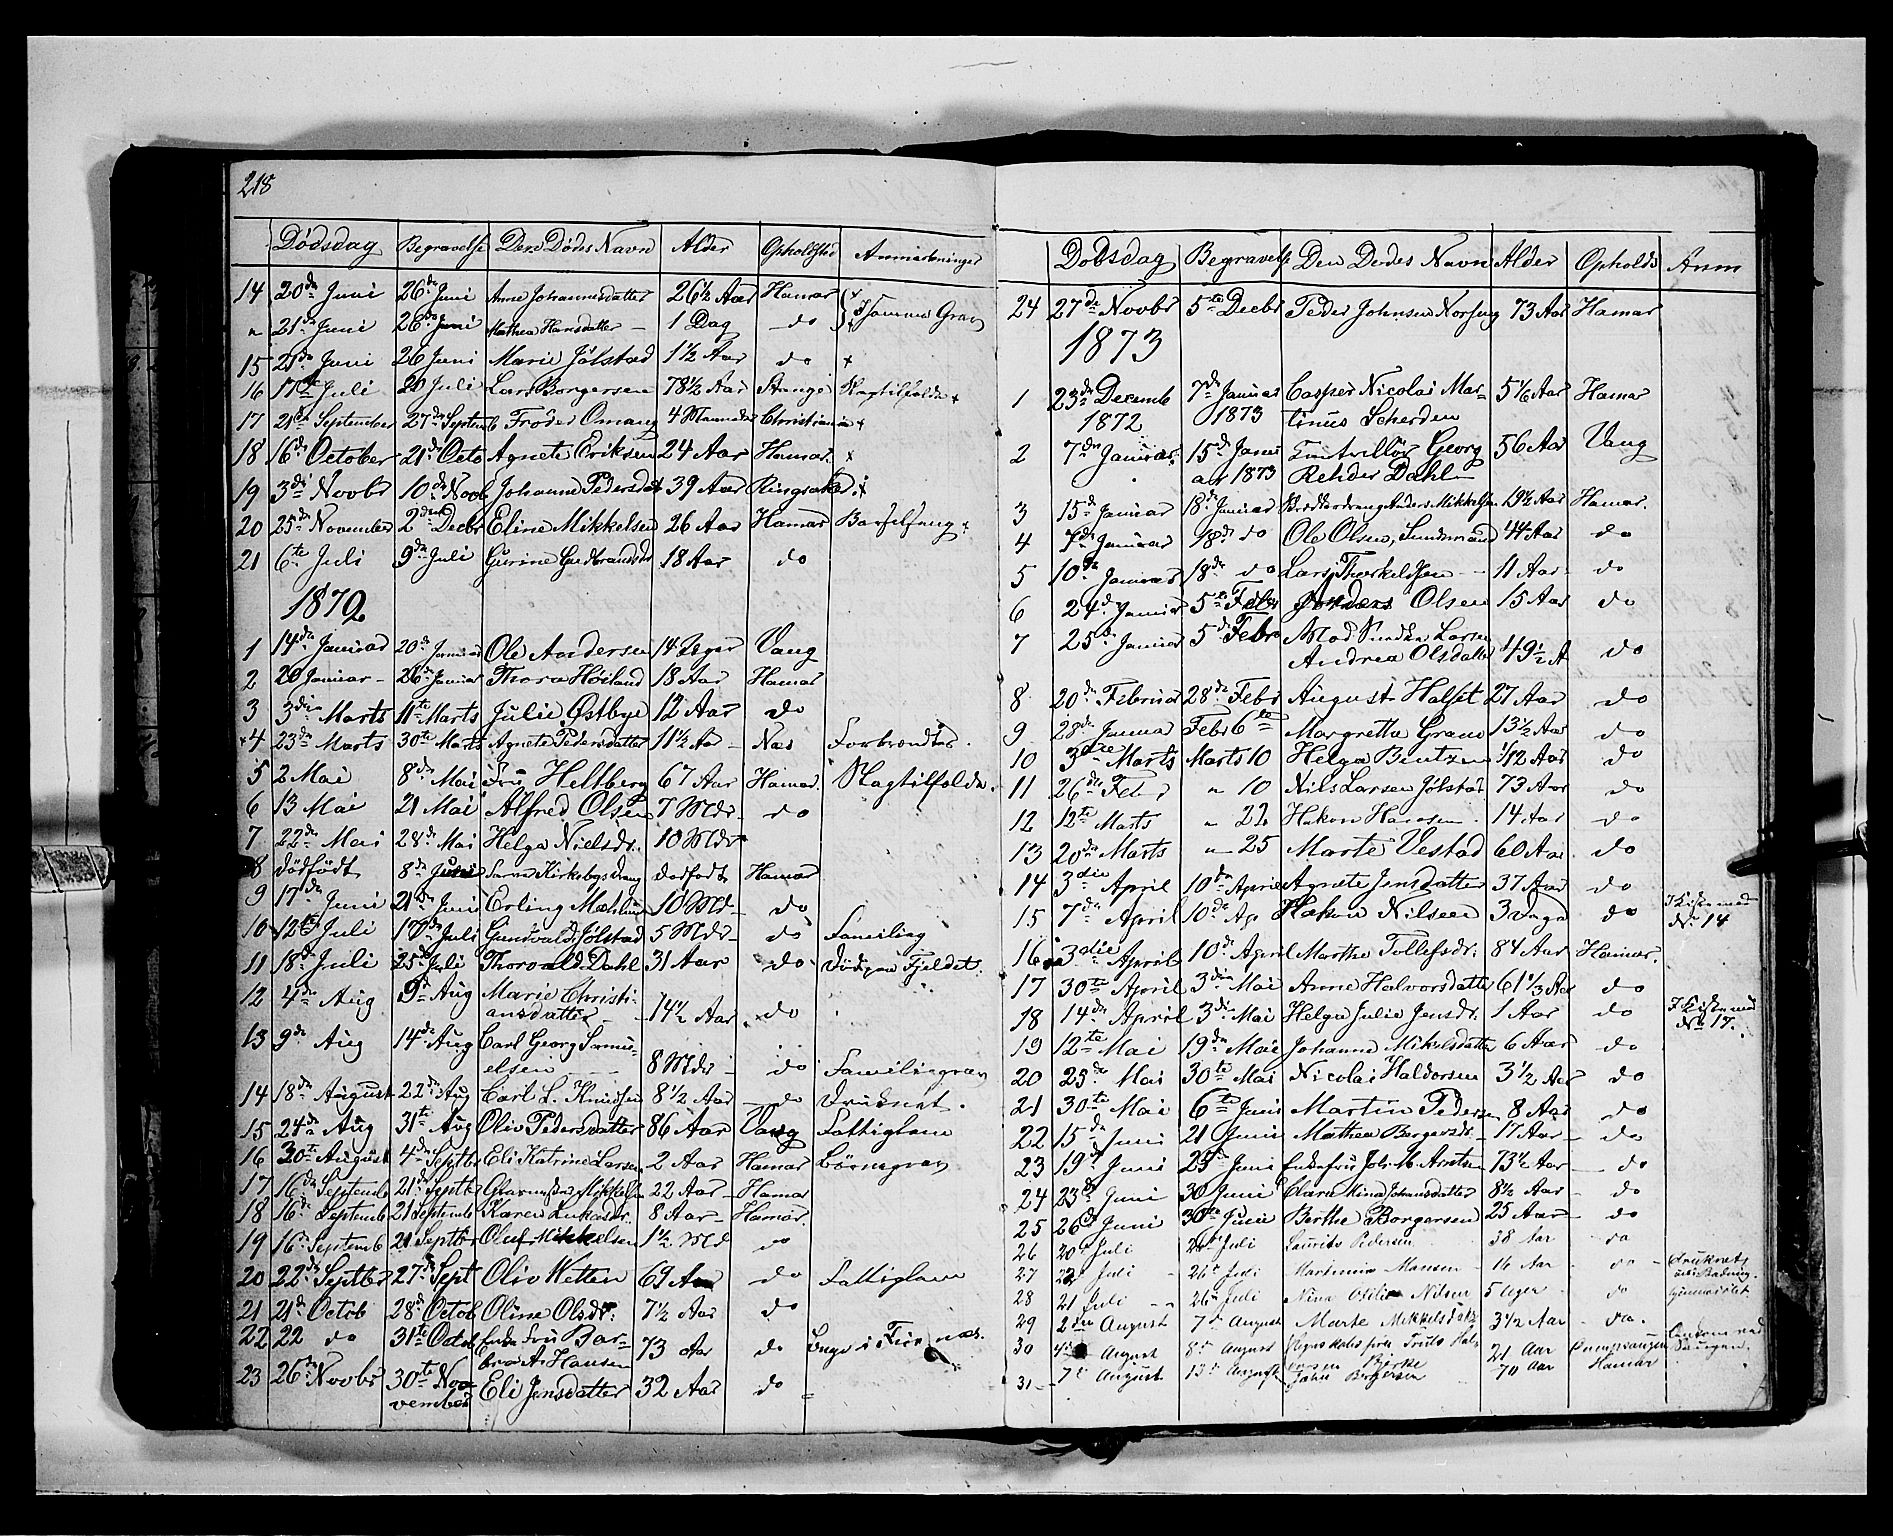 218
Dödsdag Begravelse Den Dödes Navn Alder Opholdsted Anmærkninger
14 20de Juni 26de Juni Anne Johannesdatter 26½ Aar Hamar
" 21de Juni 26de Juni Mathea Hansdatter 1 Dag do Samme Grav
15 21de Juni 26 Juni Marie Jölstad 1½ Aar do +
16 17de Juli 20 Juli Lars Borgersen 78½ Aar Stange Slagtilfælde +
17 21de September 27de Septemb Frode Omang 4 Maaneder Christiania +
18 16de October 21de Octo Agnete Eriksen 24 Aar Hamar +
19 3die Novbr 10de Novb Johanne Pedersdat 39 Aar Ringsaker +
20 25de November 2den Decbr Eline Mikkelsen 26 Aar Hamar Barselseng +
21 6te Juli 9de Juli Gurine Gudbrandsdr 18 Aar do
1872
1 14de Januar 20de Januar Ole Andersen 14 Uger Vang
2 20 Januar 26de Januar Thora Höiland 18 Aar Hamar
3 3die Marts 11te Marts Julie Østbye 12 Aar do
+4 23de Marts 30te Marts Agnete Pedersdatter 11½ Aar Næs Forbrændte
5 2 Mai 8de Mai Fru Heltberg 67 Aar Hamar Slagtilfælde
6 13 Mai 21 Mai Alfred Olsen 7 Mdr do
7 22de Mai 28de Mai Helga Nielsdr. 10 Mdr
8 dödfödt 8de Juni Kirkebys Dreng dödfödt Hamar
9 17de Juni 21de Juni Erling 10 Md do
10 12te Juli 17de Juli Gundvald Jölstad 5 Mdr do Familieg
11 18de Juli 25de Juli Thorvald Dahl 31 Aar do Död paa Fjeldet.
12 4de Aug 9de Aug Marie Christi-
ansdatter 14½ Aar do
13 9de Aug 14de Aug Carl Georg Samu-
elsen 8 Mdr do Familiegrav
14 18de August 22de Aug Carl L. Knudsen 8½ Aar do Druknet.
15 24de Aug 31te Aug Oliv Pedersdatter 86 Aar Vang Fattiglem
16 30te August 4de Septbr Eli Katrine Larsen 2 Aar Hamar Börnegrav
17 16de Septemb 21de Septbr Mikkelsen 22 Aar Hamar
18 16de Septemb 21 Septemb Karen Lukasdr. 8 Aar Hamar.
19 16de Septemb 21 Septbr Oluf Mikkelsen 1½ Md do
20 22de Septbr 27de Sept Oliv Wetten 69 Aar do Fattiglem
21 21de Octob 28de Octob Oline Olsdr. 7½ Aar do
22 22 do 31te Octob Enke Fru Bar-
bra A. Hansen 73 Aar do
23 26de Novbr 30te No-
vember Eli Jensdatter 32 Aar do
Dödsdag Begravelse Den Dödes Navn Alder Opholds Anm
24 27de Novbr 5te Decbr Peder Johnsen 73 Aar Hamar
1873
1 23de Decemb 7de Januar Casper Nicolai Mar- 5 1/6 Aar Hamar
1872 1873 tinus Scherden
2 7de Januar 15de Janu Georg 56 Aar Vang
ar 1873 Rehder Dahl
3 15de Januar 18de Januar Anders Mikkelsen 19½ Aar Hamar.
4 7de Januar 18de do Ole Olsen, 44 Aar do
5 10de Januar 18de do Lars Thorkeldsen 11 Aar do
6 24de Januar 5te Febr Anders Olsen 15 Aar do
7 25de Januar 5te Febr Larsen
Andrea Olsdatter 49½ A do
8 20de Februar 28de Febr August Halset 27 Aar do
9 28de Janua Febr 6te Margrethe Gran 13½ Aar do
10 3die Marts Marts 10 Helga Bentzen 1/12 Aar do
11 26de Febr " 10 Nils Larsen Jölstad 73 Aar do
12 12te Marts " 22 Hakon Hansen 14 Aar do
13 20de Marts " 25 Marte Vestad 60 Aar do
14 3die April 10de April Agnete Jensdatter 37 Aar do
15 7de April 10de Ap Hakon Nilsen 3 Dage do I Kiste med No 14
16 3die April 10de April Marthe Tollefsdr. 84 Aar Hamar.
17 30te April 3die Mai Anne Halvorsdatter 61⅓ Aar do
18 14de April 3die Mai Helga Julie Jensdr. 1 Aar do I Kiste med No 17.
19 12te Mai 19de Mai Johanne Mikelsdatter 6 Aar do
20 25de Mai 30te Mai Nicolai Haldorsen 3½ Aar do
21 30te Mai 6te Juni Martin Peders 8 Aar do
22 15de Juni 21 Juni Mathea Borgersdr. 17 Aar do
23 19de Juni 25de Juni Enkefru Joh. M. Arntsen 73½ Aar do
24 23de Juni 30 Juni Clara Mina Johansdatter 8½ Aar do
25 26de Juni 30te Juni Berthe Borgersen 25 Aar do
26 20de Juli 26de Juli Laurits Pedersen 38 Aar do
27 22de Juli 26de Juli Hansen 16 Aar do druknet
28 21 Juli 26de Juli Nina Otilie Nilsen 5 Uger do
29 2den August 7de August Marte Mikkelsdatr 3½ Aar do.
30 4de August 8de August 21 Aar
31 7de August 13de August Borgersen 70 Aar Hamar